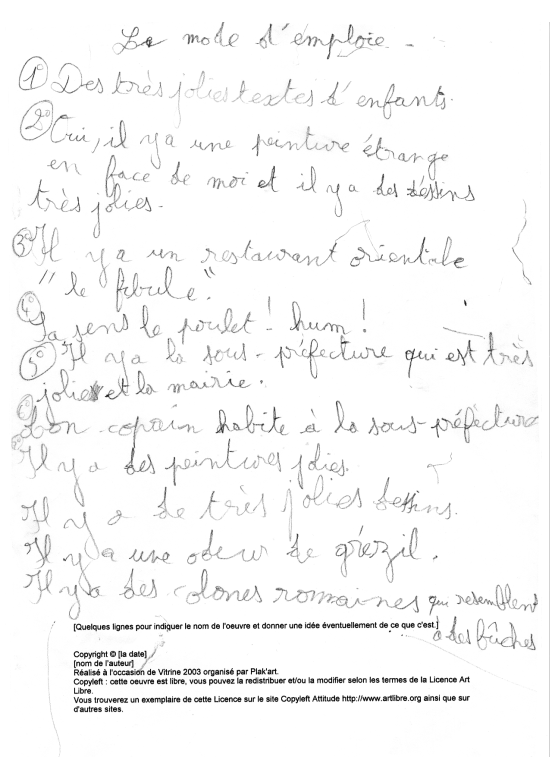 Le mode d'emploie -
1° Des très jolies textes d'enfants.
2° Oui, il ya une peinture étrange
en face de moi et il ya des dessins
très jolies.
3° Il ya un restaurant orientale
"le fibule."
4°
Ya sens le poulet! hum!
5° Il ya la sous-préfecture qui est très
jolies et la mairie.
Lon copain habite à la sous-préfecture
Il y a des peintures jolies.
Il y a de très jolies dessins.
Il y a une odeur de grézil.
Il y a des colones romaines qui resemblent
a des bûches
[Quelques lignes pour indiquer le nom de l'oeuvre et donner une idée éventuellement de ce que c'est.]
Copyright © [la date]
[nom de l'auteur]
Réalisé à l'occasion de Vitrine 2003 organisé par Plak'art.
Copyleft : cette oeuvre est libre, vous pouvez la redistribuer et/ou la modifier selon les termes de la Licence Art
Libre.
Vous trouverez un exemplaire de cette Licence sur le site Copyleft Attitude http://www.artlibre.org ainsi que sur
d'autres sites.